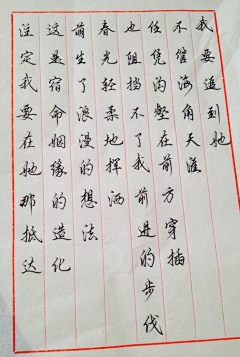 我要追到她
不管海角天涯
任凭沟壑在前方穿插
也阻挡不了我前进的步伐
春光轻柔地挥洒
萌生了浪漫的想法
这是宿命姻缘的造化
注定我要在她那抵达